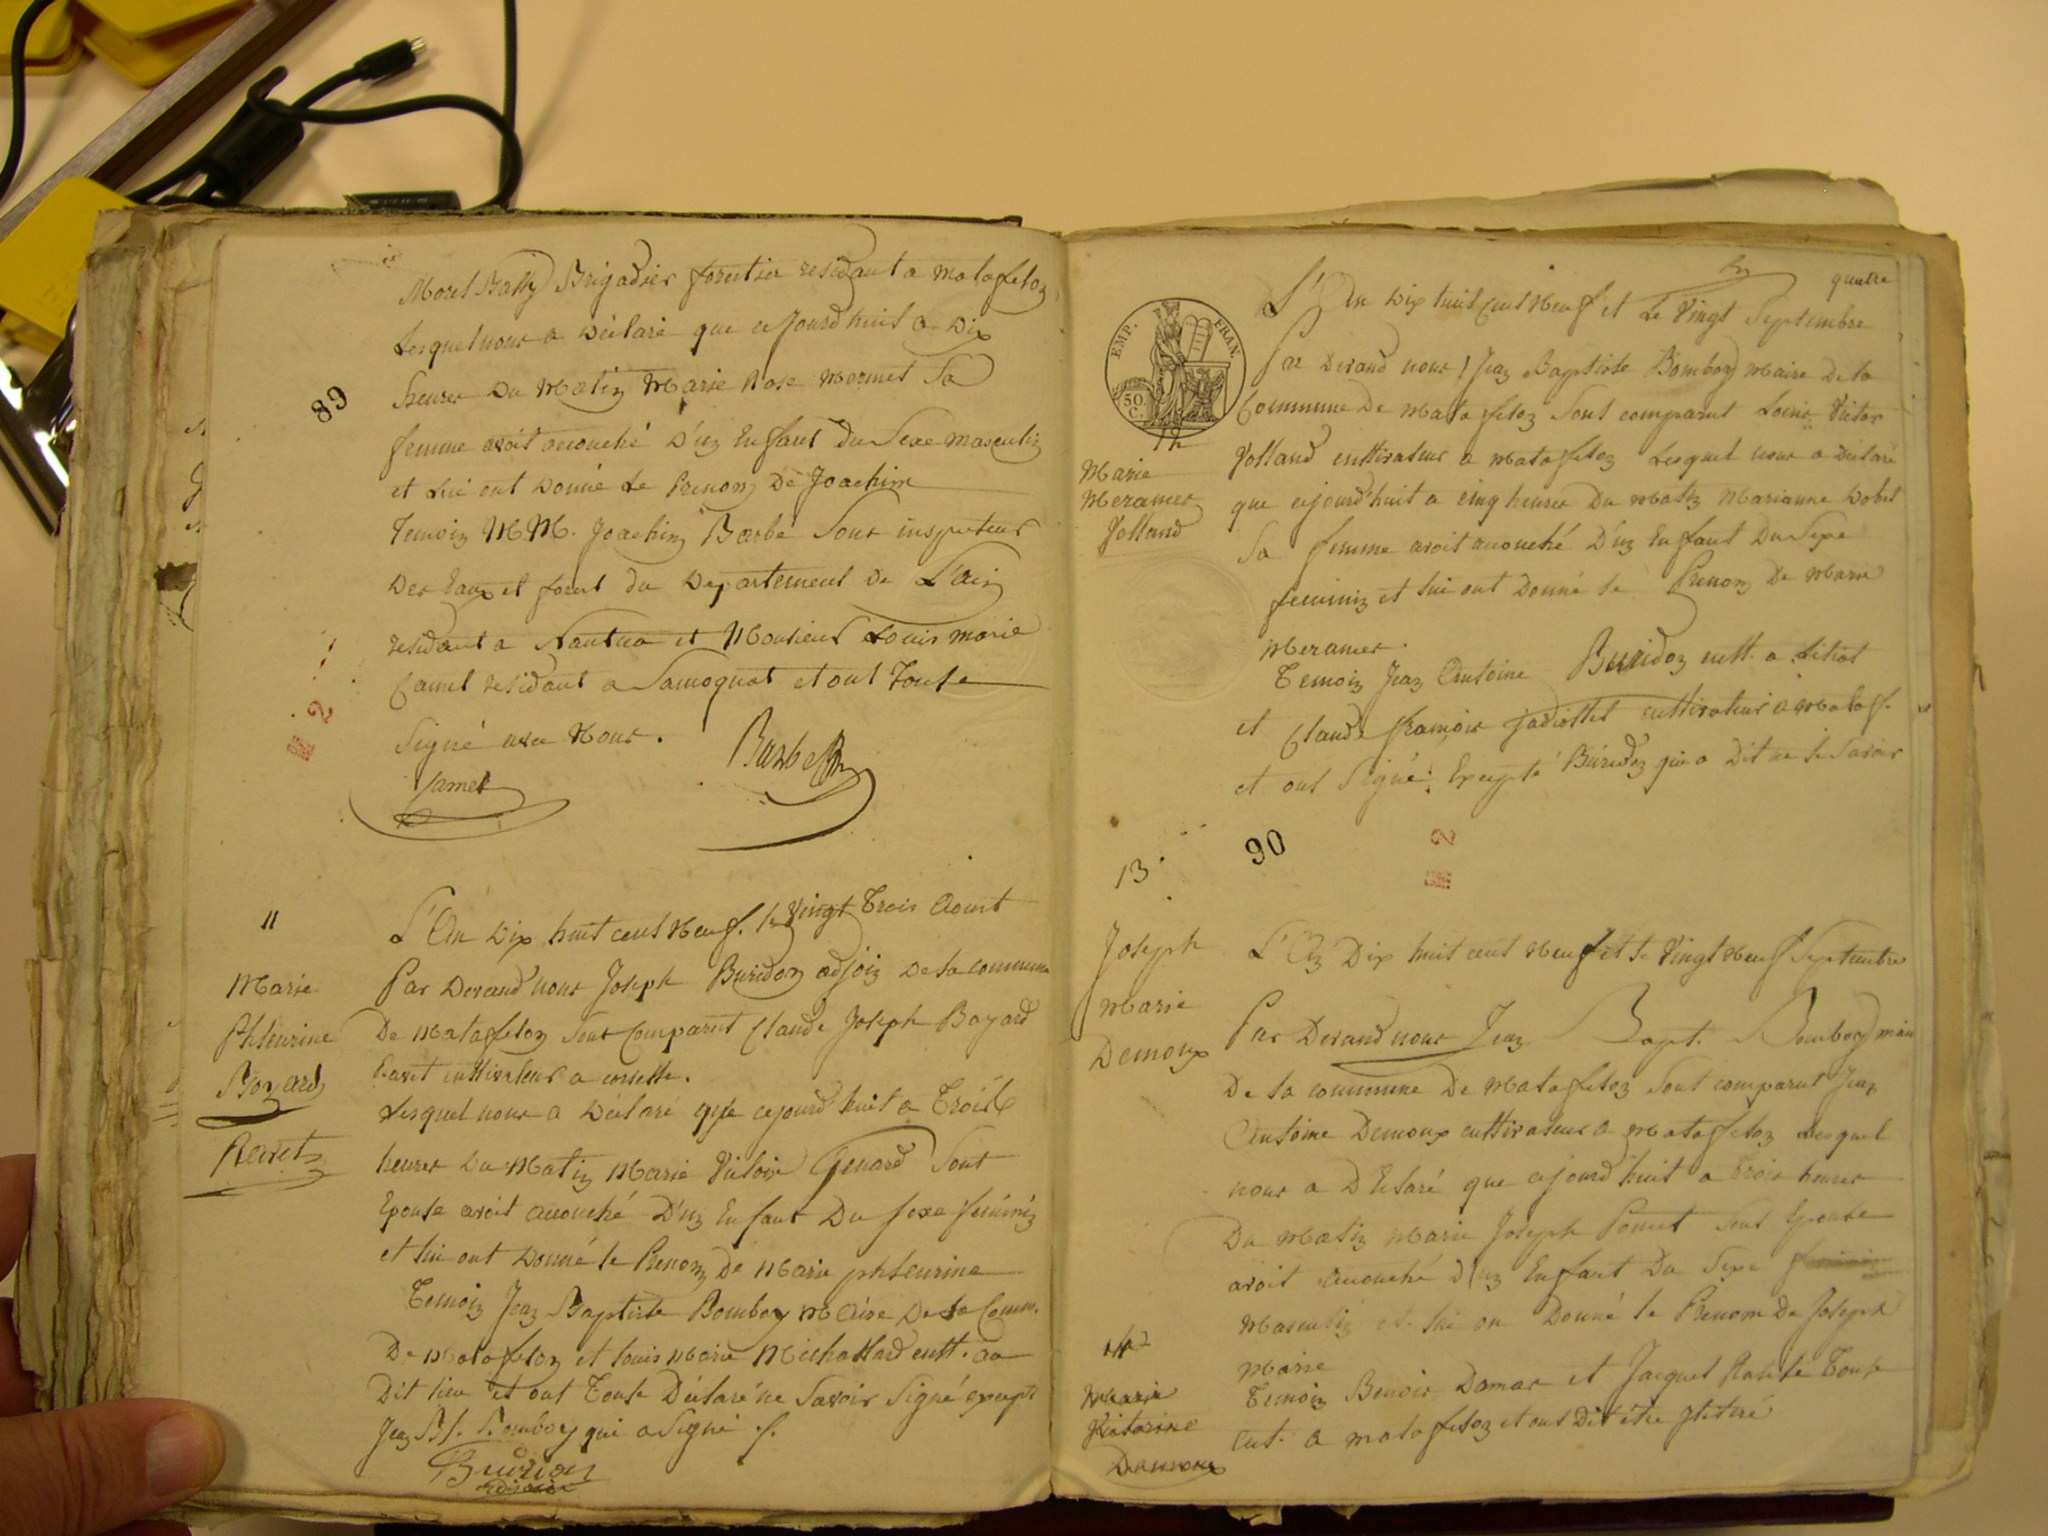 Morel Bally Brigadier forestier residant a matafelon
Lesquel nous a déclaré que cejourdhuit a Dix
89
heures Du Matin Marie Rose mermet Sa
femme avoit accouché D'un Enfant du Sexe masculin
et Lui ont Donné Le Prenom De Joachim
Temoin M M. Joachim Barbe Sous inspecteur
Des Eaux et foret du Departement De L'ain
residant a Nantua et Monsieur Louis marie
Camet residant a Samognat et ont Touse
Signé avec Nous.
Camet
Barbe
11
L'An Dix huit cent Neuf. le Vingt Trois Aoust
Marie
Phleurine
Bozard
Revret
Par Devand nous Joseph Buridon adjoin De la commune
De Matafelon Sont Comparut Claude Joseph Bozard
cultivateur a corcelle.
Lesquel nous a Déclaré que cejourd'huit a Trois
heures Du Matin Marie Victoire Genard Sont
Epouse avoit accouché D'un Enfant Du sexe féminin
et lui ont Donné le Prenom De Marie phleurine
Temoin Jean Baptiste Bomboy Maire De la Comm.
De Matafelon et Louis Marie Michallard cult. au
Dit lieu et ont Touse Déclaré ne Savoir Signé except
Jean Bt. Bomboy qui a Signé
Buridon
adjoin
quatre
L'An Dix huit cent Neuf et Le Vingt Septembre
EMP. FRAN.
50.
C.
Par Devand nous Jean Baptiste Bomboy maire De la
Commune De Matafelon Sont comparut Louis Victor
12
Marie
Meramer
Jolland
Jolland cultivateur a Matafelon Lesquel nous a Déclaré
que cejourd'huit a cinq heures Du Matin Marianne Dobel
Sa femme avoit accouché D'un Enfant Du Sexe
feminin et lui ont Donné le Prenom De Marie
Meramer.
Temoin Jean Antoine Buridon cult. a
et Claude francois Jadiollet cultivateur a Mataf.
et ont Signé Excepté Buridon qui a Dit ne le Savoir
90
13
Joseph
Marie
Demoux
L'An Dix huit cent Neuf et le Vingt Neuf Septembre
Par Devand nous Jean Bapt. Bomboy mair
De la commune De Matafelon Sont comparut Jean
Antoine Demoux cultivateur a Matafelon Lesquel
nous a Déclaré que cejourd'huit a trois heures
Du Matin Marie Joseph Poncet Sont Epouse
avoit accouché d'un Enfant Du Sexe feminin
Masculin et lui on Donné le Prenom De Joseph
Marie
Temoin Benoit Damas et Jacquet Touse
Cult. a Matafelon et ont Dit être
Marie
Demoux